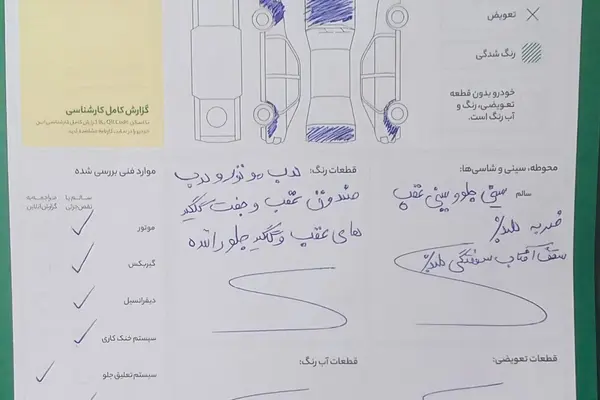 تعویض
رنگ شدگی
خودرو بدون قطعه
تعویضی، رنگ و
آب رنگ است.
گزارش کامل کارشناسی
محوطه، سینی و شاسی‌ها:
سالم
سینی جلو و سینی عقب
ضربه دارد
سقف آفتاب سوختگی دارد
قطعات رنگ:
درب موتور و درب
صندوق عقب و جفت گلگیر
های عقب و گلگیر جلو راننده
موارد فنی بررسی شده
سالم یا
نقص جزئی
مراجعه به
گزارش آنلاین
موتور
گیربکس
دیفرانسیل
سیستم خنک کاری
سیستم تعلیق جلو
قطعات تعویضی:
قطعات آب رنگ: